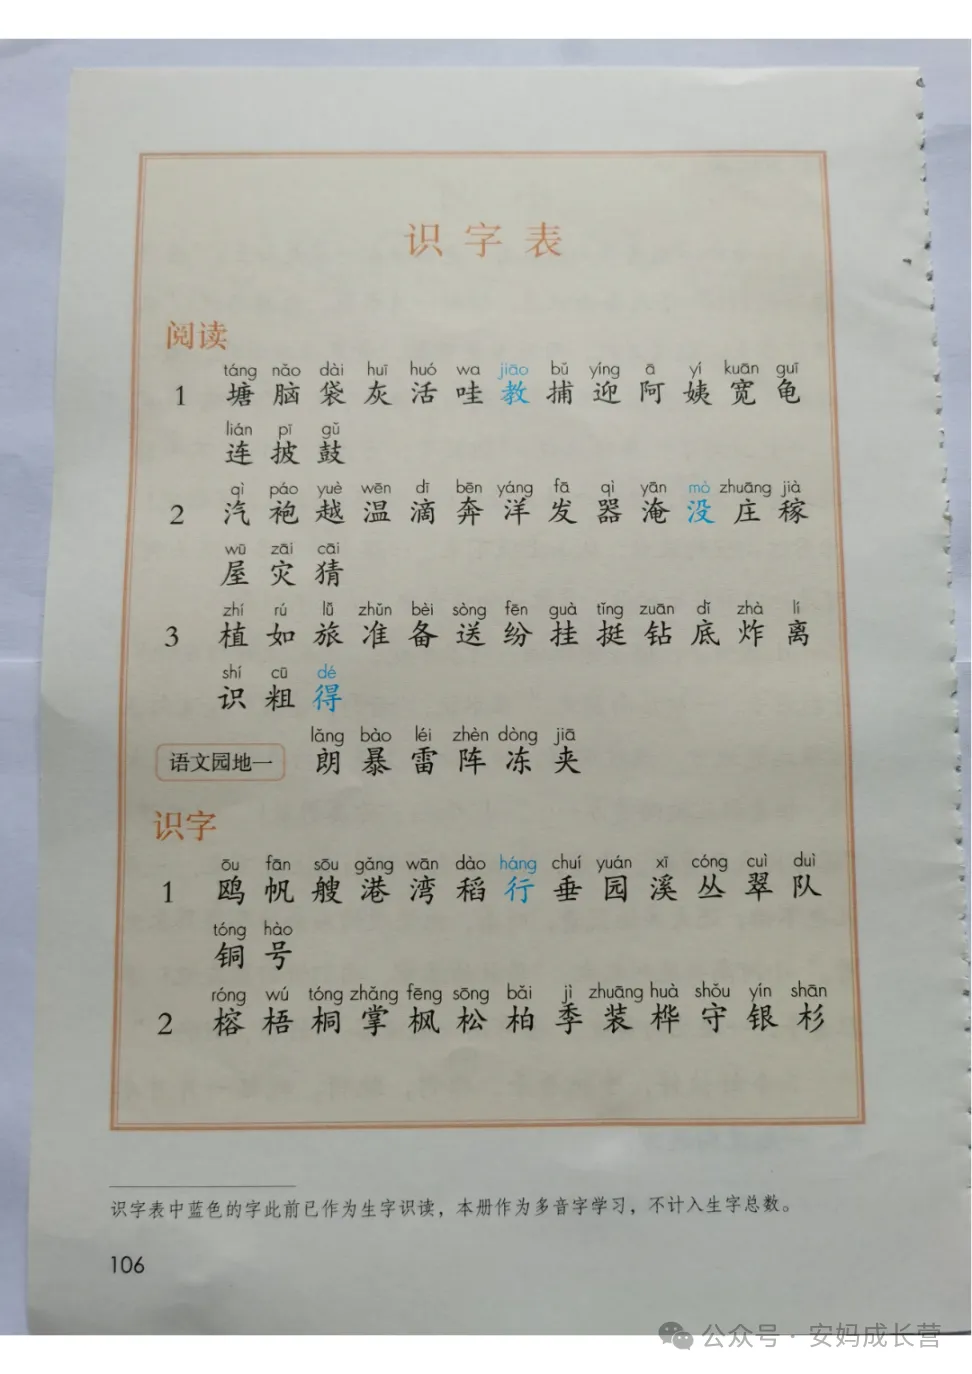 识字表
阅读
táng nǎo dài huī huó wa jiāo bǔ yíng ā yí kuān guī
1 塘 脑 袋 灰 活 哇 教 捕 迎 阿 姨 宽 龟
lián pī gǔ
连 披 鼓
qì páo yuè wēn dī bēn yáng fā qì yān mò zhuāng jià
2 汽 袍 越 温 滴 奔 洋 发 器 淹 没 庄 稼
wū zāi cāi
屋 灾 猜
zhí rú lǚ zhǔn bèi sòng fēn guà tǐng zuān dǐ zhà lí
3 植 如 旅 准 备 送 纷 挂 挺 钻 底 炸 离
shí cū dé
识 粗 得
lǎng bào léi zhèn dòng jiā
语文园地一 朗 暴 雷 阵 冻 夹
识字
ōu fān sōu gǎng wān dào háng chuí yuán xī cóng cuì duì
1 鸥 帆 艘 港 湾 稻 行 垂 园 溪 丛 翠 队
tóng hào
铜 号
róng wú tóng zhǎng fēng sōng bǎi jì zhuāng huà shǒu yín shān
2 榕 梧 桐 掌 枫 松 柏 季 装 桦 守 银 杉
识字表中蓝色的字此前已作为生字识读，本册作为多音字学习，不计入生字总数。
106
公众号 · 安妈成长营